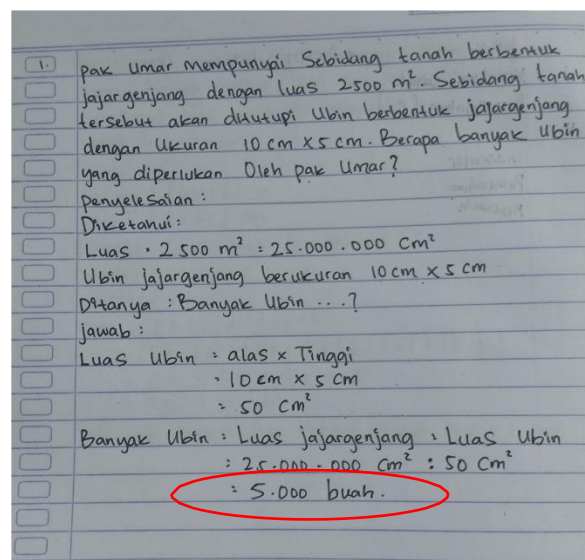 1. Pak Umar mempunyai Sebidang tanah berbentuk
jajargenjang dengan luas 2500 m². Sebidang tanah
tersebut akan ditutupi Ubin berbentuk jajargenjang
dengan Ukuran 10 cm x 5 cm. Berapa banyak Ubin
yang diperlukan Oleh pak Umar?
Penyelesaian :
Diketahui :
Luas : 2 500 m² : 25.000.000 cm²
Ubin jajargenjang berukuran 10 cm x 5 cm
Ditanya : Banyak Ubin ...?
jawab :
Luas Ubin : alas x Tinggi
: 10 cm x 5 cm
= 50 cm²
Banyak Ubin : Luas jajargenjang : Luas Ubin
: 25.000.000 cm² : 50 cm²
: 5.000 buah.